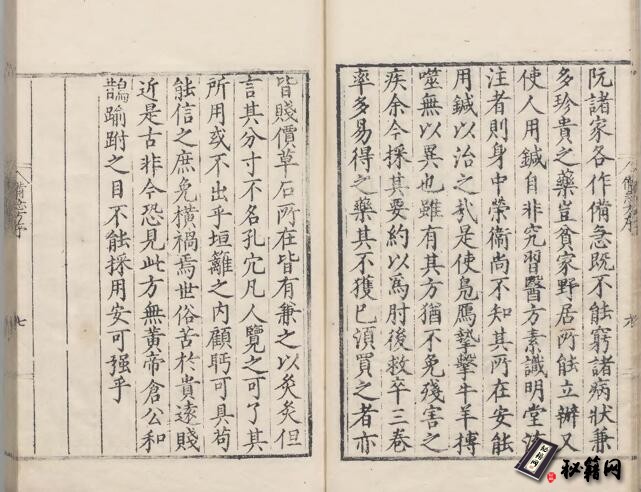 阮諸家各作備急既不能窮諸病狀兼
多珍貴之藥豈貧家野居所能立辦又
使人用鍼自非究習醫方素識明堂流
注者則身中榮衞尚不知其所在安能
用鍼以治之哉是使鳧鴈摯擊牛羊搏
噬無以異也雖有其方猶不免殘害之
疾余今採其要約以爲肘後救卒三卷
率多易得之藥其不獲已須買之者亦
皆賤價草石所在皆有兼之以灸灸但
言其分寸不名孔穴凡人覽之可了其
所用或不出乎垣籬之內顧眄可具苟
能信之庶免橫禍焉世俗苦於貴遠賤
近是古非今恐見此方無黃帝倉公和
鵲踰跗之目不能採用安可强乎
備急方序
七
秘籍网